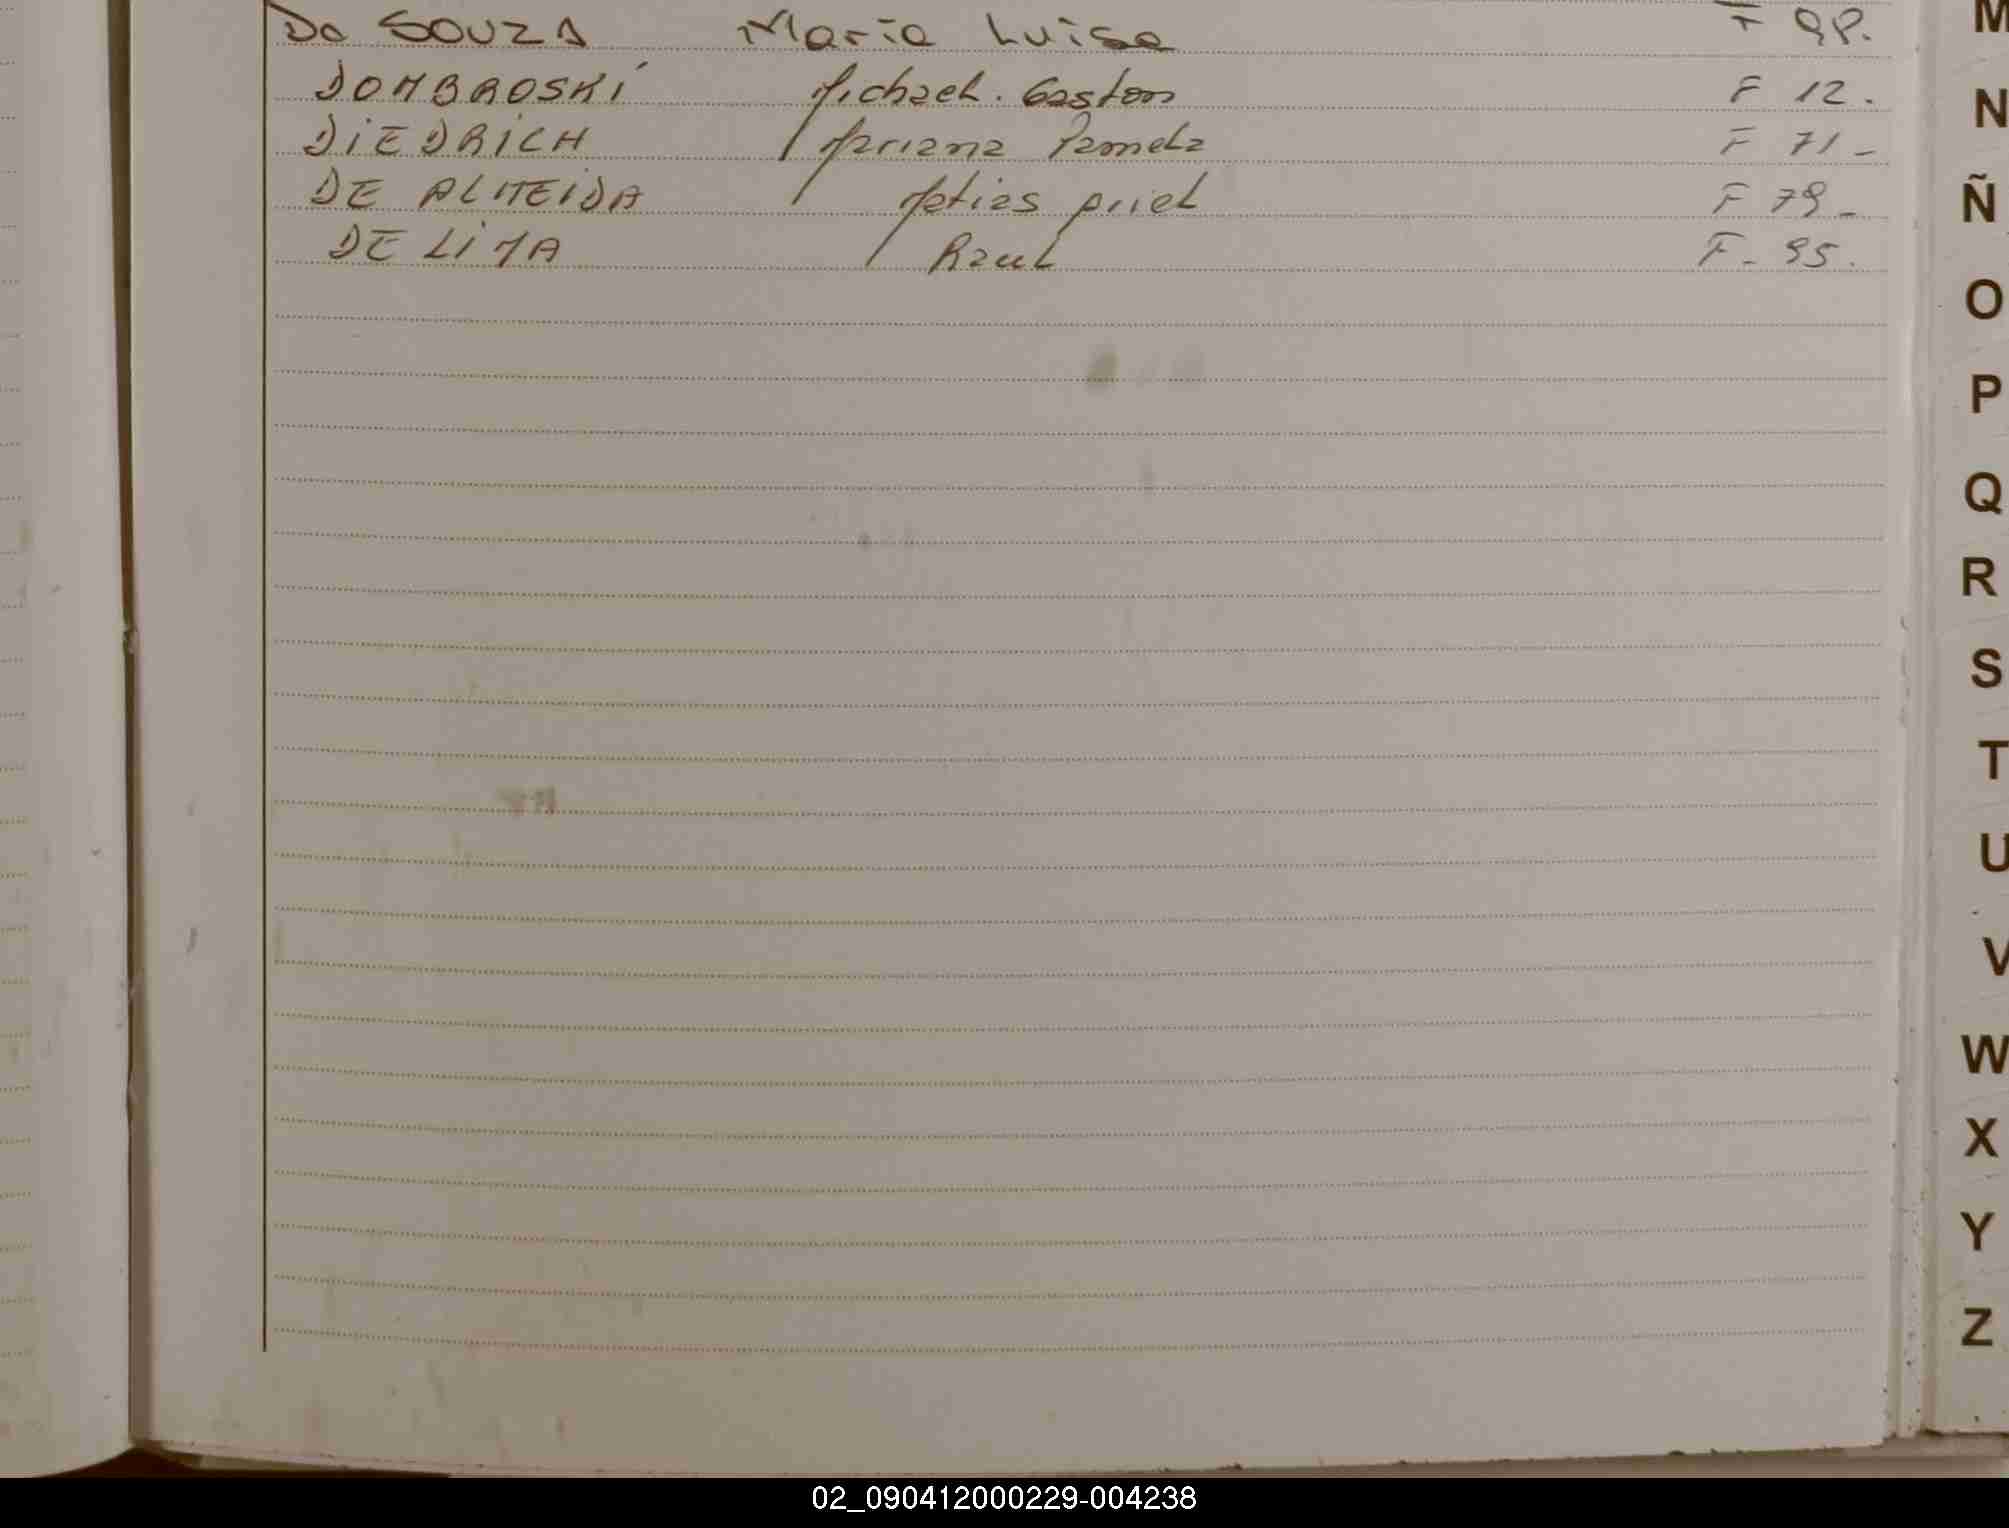 Do SOUZA Maria Luisa F 98.
DOMBROSKi Michael. Gaston F 12.
DiEDRiCH Mariana Pamela F 71-
DE ALMEiDA Matias Ariel F 79-
DE LiMA Raul F- 95.
M
N
Ñ
O
P
Q
R
S
T
U
V
W
X
Y
Z
02_090412000229-004238